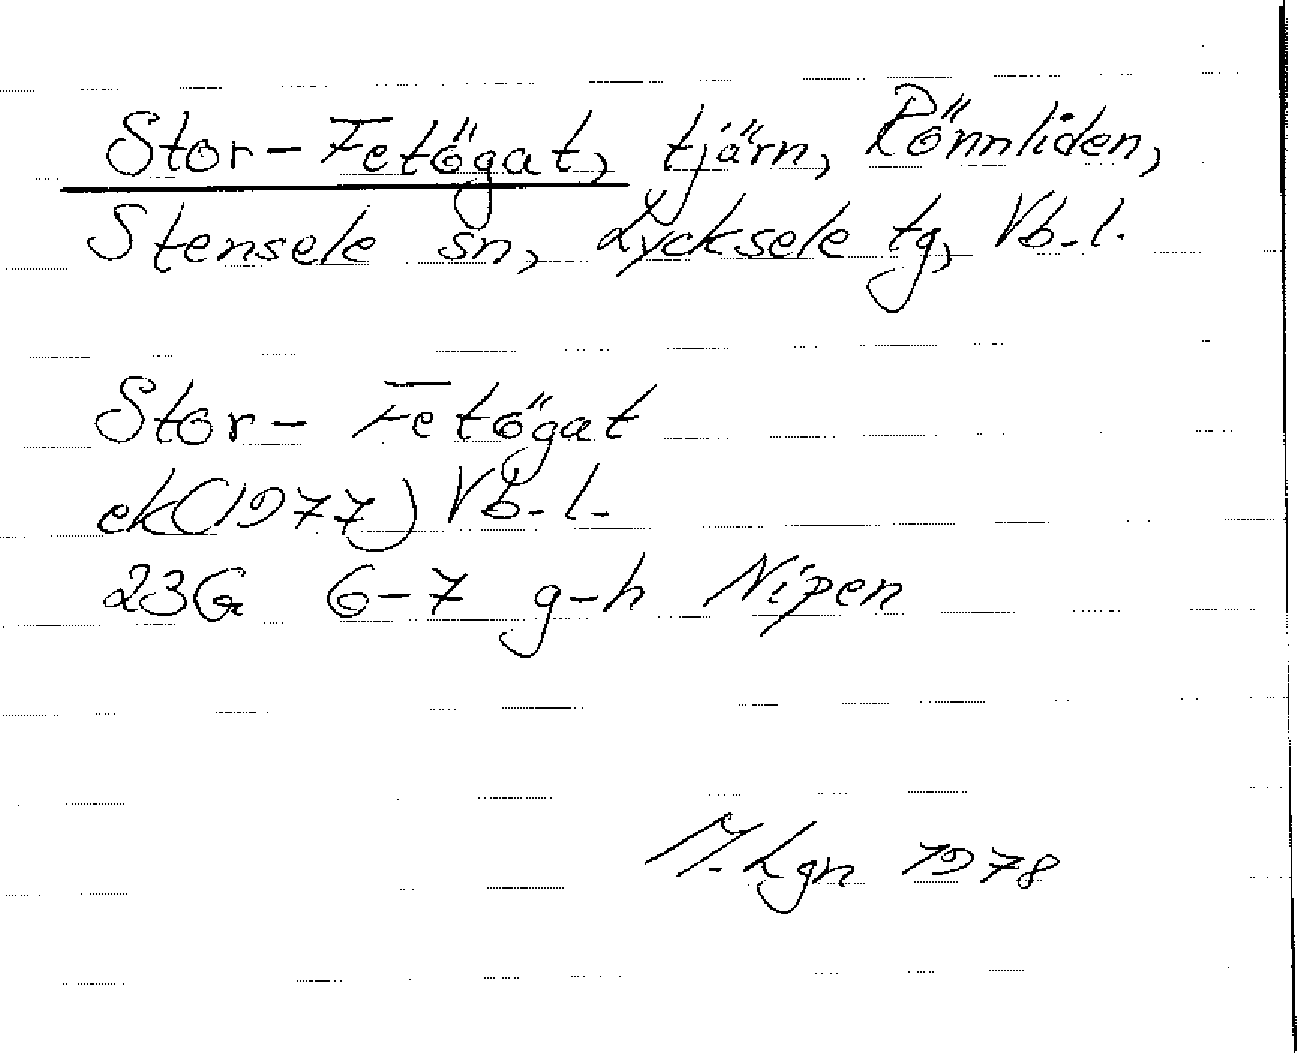 Stor-Fetögat, tjärn, Rönnliden,
Stensele sn, Lycksele tg, Vb-l.
Stor-Fetögat
ek(1977) Vb-l.
23G 6-7 g-h Nipen
M. Lgn 1978